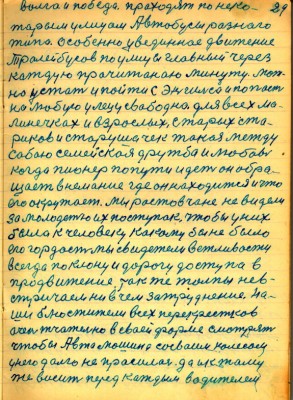 волга и победа. проходят по неко- 29
торым улицам Автобусы разного
типа. Особенно увединное движение
Тролейбусов по улицы главный через
каждую прочитаную минуту. мож
но устат и пойти с Энгилса и попаст
на любую улицу свободна. для всех ма
линечках и взрослых, старих ста
риков и старушачек такая между
собаю семейская дружба и любовь
когда пионер по пути идет он обра
щает внемание где он находится и что
его окрутает. мы ростовчане не видем
за молодеть их поступак, чтобы у них
была к человеку какому бы не было
его гордаст. мы свидетели ветливости
всегда поклону и дорогу доступа в
продвитение, так те толпы не в-
стричаем ни в чем затруднение. на-
ши блюстители всех перекрестков
очен тчательно в своей форме смотрят
чтобы Авто машина соеваим колесам
унего долго не прасилас, да и к таму
же висит перед каждым водителем